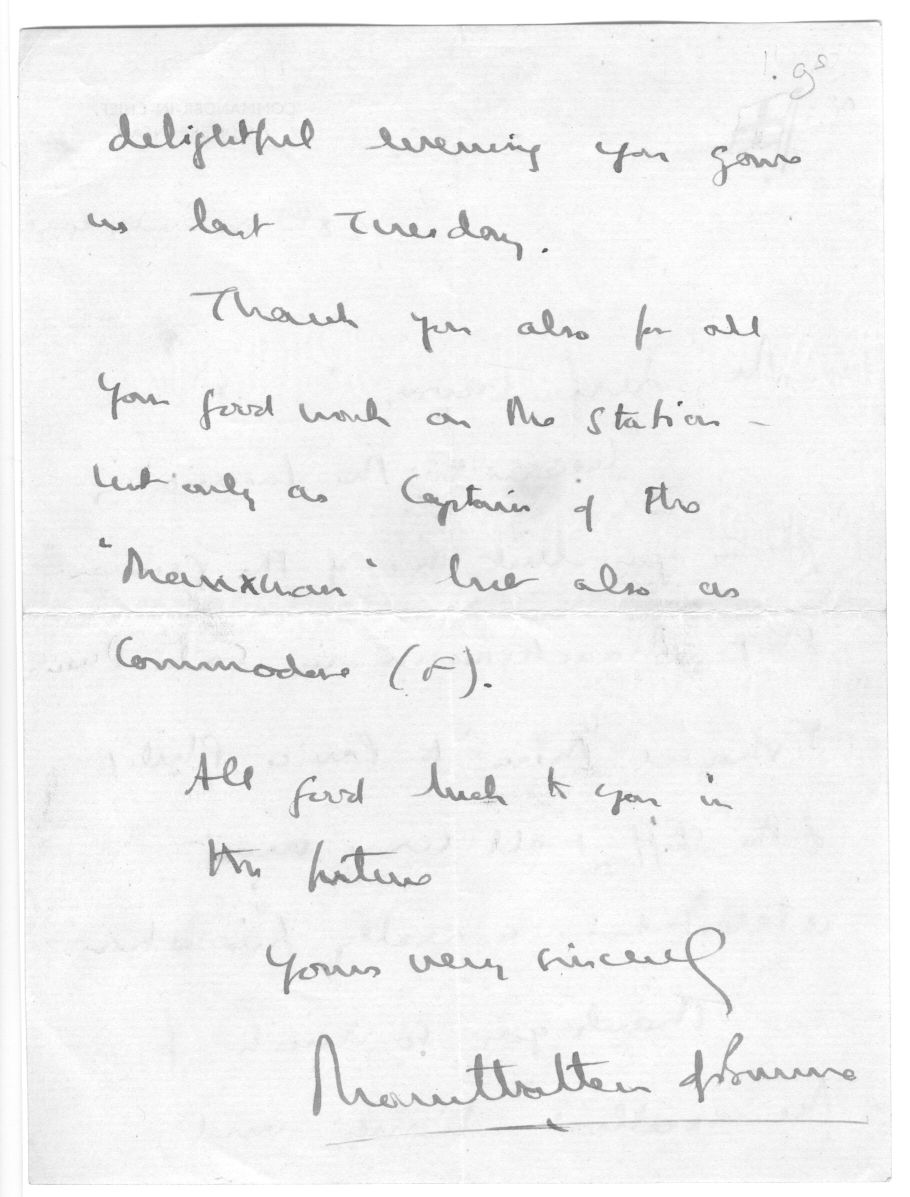 delightful evening you gave
us last Tuesday.
Thank you also for all
your good work on the station -
not only as Captain of the
"Manxman" but also as
Commodore (F).
All good luck to you in
the future
Yours very sincerely
Mountbatten of Burma